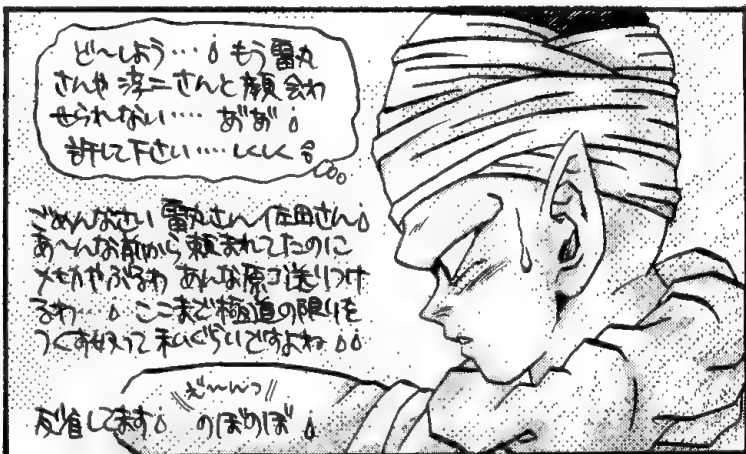 ど〜しよう…もう雷丸
さんや淳二さんと顔会わ
せられない……あ゛あ゛
許して下さい……しくしく
ごめんなさい雷丸さん佐田さん
あ〜んな前から頼まれてたのに
メ切やぶるわあんな原ゴ送りつけ
るわ…ここまで極道の限りを
つくす奴って私ぐらいですよね
ず〜〜んっ
反省してます のぼのぼ